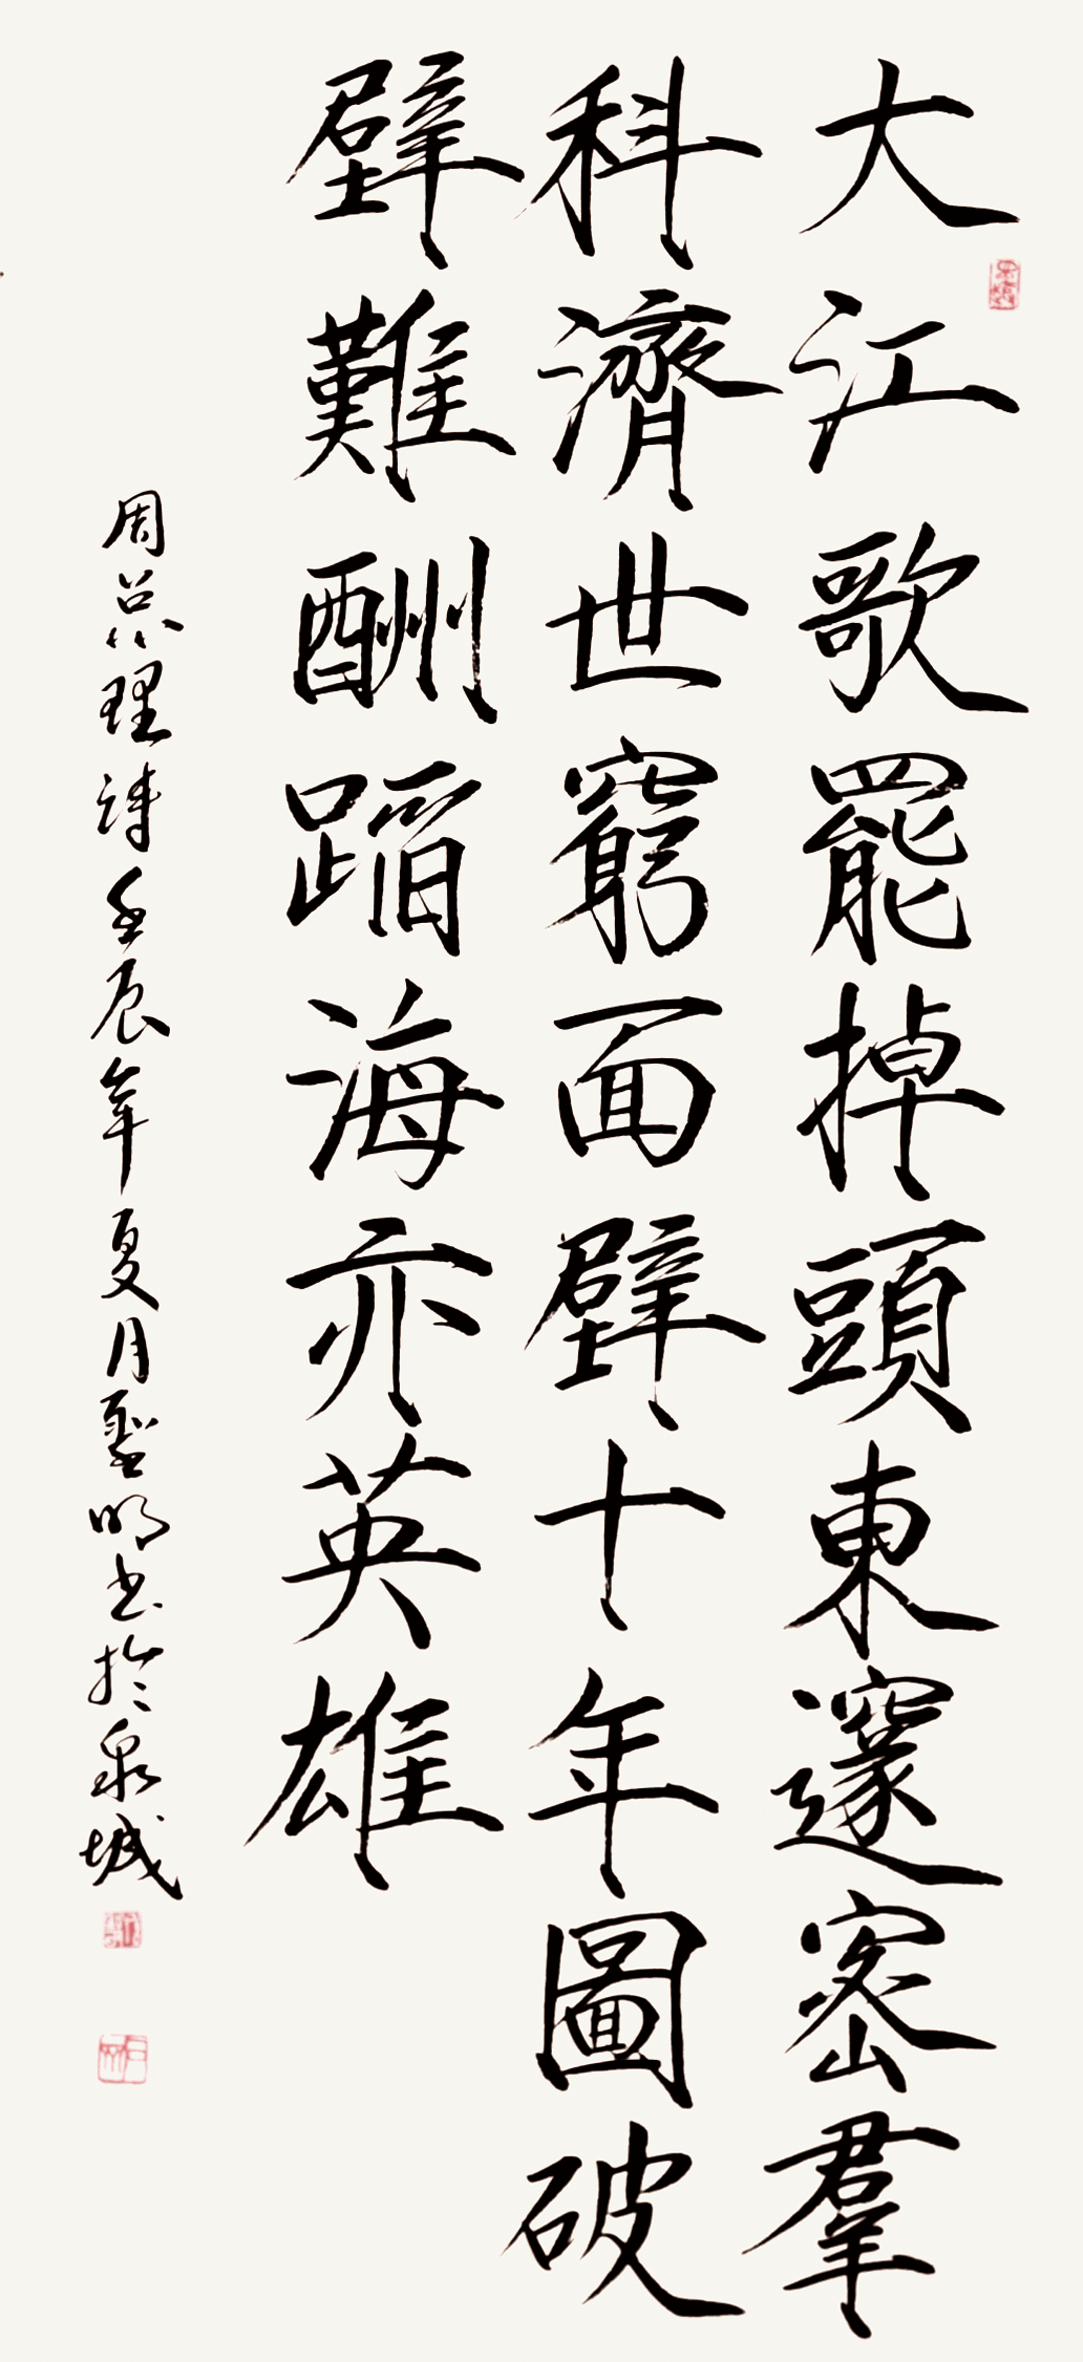 大江歌罷掉頭東邃密羣
科濟世窮面壁十年圖破
壁難酬蹈海亦英雄
周总理诗壬辰年夏月聖明书於泉城